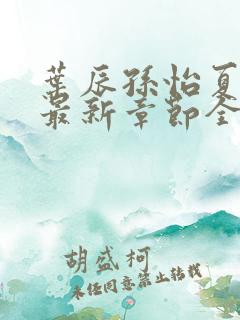 葉辰孫怡夏
最新章節全
胡盛柯
未经同意禁止转载